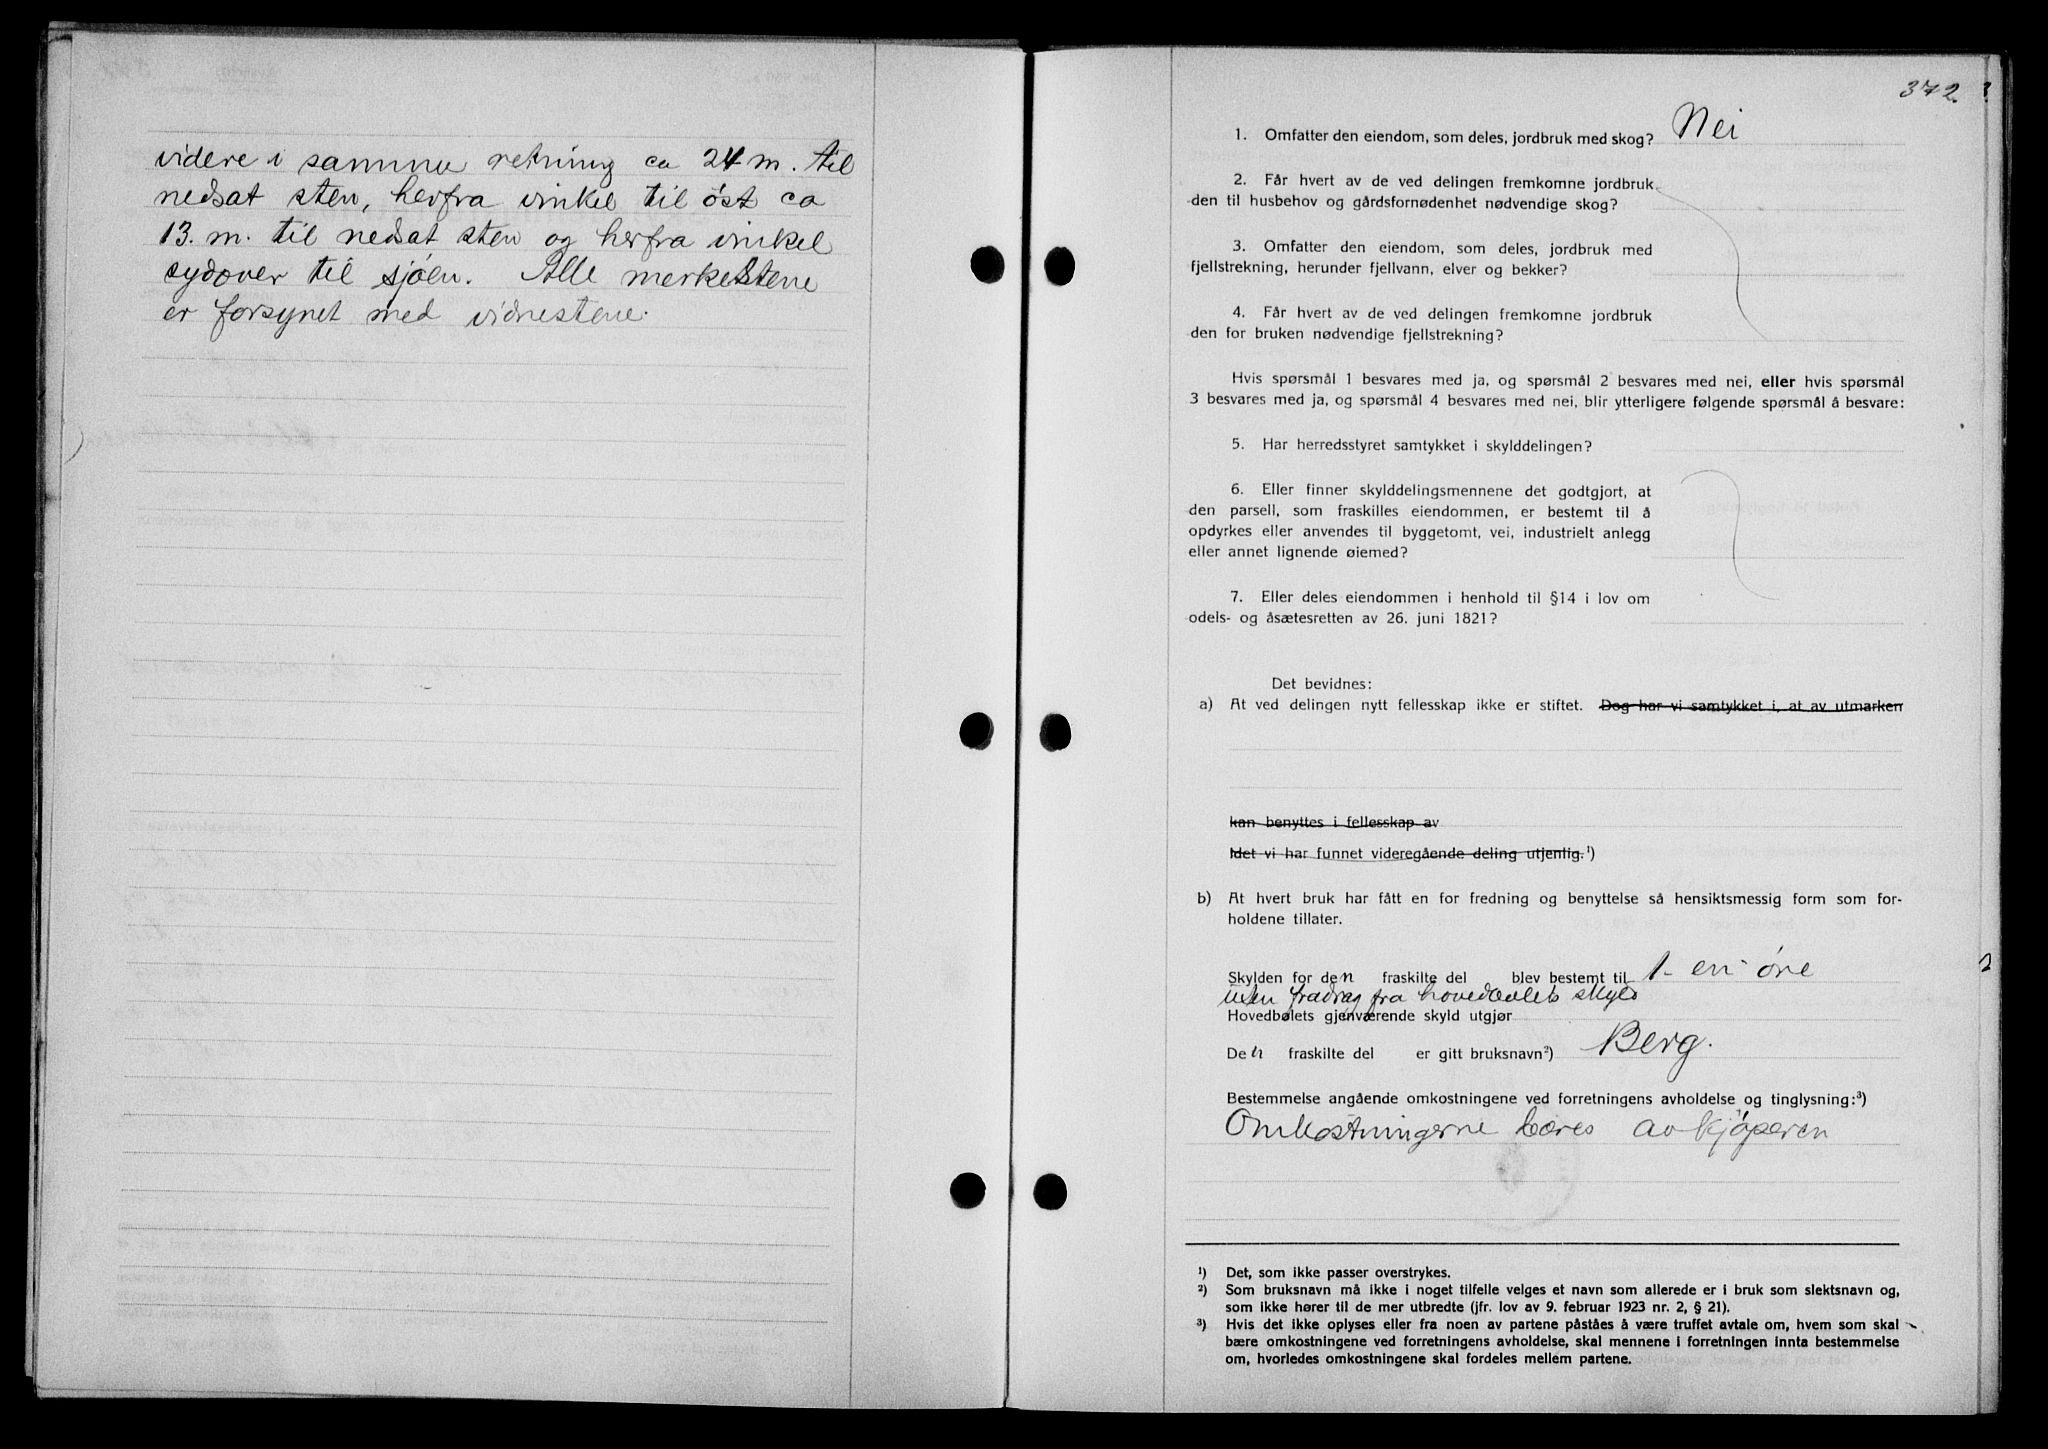 videre i samme retning ca 24 m. til
nedsat sten, herfra vinkel til øst ca
13. m. til nedsat sten og herfra vinkel
sydover til sjøen. Alle merkestene
er forsynet med vidnestene.
372.
1. Omfatter den eiendom, som deles, jordbruk med skog? Nei
2. Får hvert av de ved delingen fremkomne jordbruk
den til husbehov og gårdsfornødenhet nødvendige skog?
3. Omfatter den eiendom, som deles, jordbruk med
fjellstrekning, herunder fjellvann, elver og bekker?
4. Får hvert av de ved delingen fremkomne jordbruk
den for bruken nødvendige fjellstrekning?
Hvis spørsmål 1 besvares med ja, og spørsmål 2 besvares med nei, eller hvis spørsmål
3 besvares med ja, og spørsmål 4 besvares med nei, blir ytterligere følgende spørsmål å besvare:
5. Har herredsstyret samtykket i skylddelingen?
6. Eller finner skylddelingsmennene det godtgjort, at
den parsell, som fraskilles eiendommen, er bestemt til å
opdyrkes eller anvendes til byggetomt, vei, industrielt anlegg
eller annet lignende øiemed?
7. Eller deles eiendommen i henhold til §14 i lov om
odels- og åsætesretten av 26. juni 1821?
Det bevidnes:
a) At ved delingen nytt fellesskap ikke er stiftet. Dog har vi samtykket i, at av utmarken
kan benyttes i fellesskap av
Idet vi har funnet videregående deling utjenlig.¹)
b) At hvert bruk har fått en for fredning og benyttelse så hensiktsmessig form som for-
holdene tillater.
Skylden for den fraskilte del blev bestemt til 1 - en - øre
uten fradrag fra hovedbølets skyld
Hovedbølets gjenværende skyld utgjør
Den fraskilte del er gitt bruksnavn²) Berg.
Bestemmelse angående omkostningene ved forretningens avholdelse og tinglysning:³)
Omkostningerne bæres av kjøperen
¹) Det, som ikke passer overstrykes.
²) Som bruksnavn må ikke i noget tilfelle velges et navn som allerede er i bruk som slektsnavn og,
som ikke hører til de mer utbredte (jfr. lov av 9. februar 1923 nr. 2, § 21).
³) Hvis det ikke oplyses eller fra noen av partene påståes å være truffet avtale om, hvem som skal
bære omkostningene ved forretningens avholdelse, skal mennene i forretningen innta bestemmelse
om, hvorledes omkostningene skal fordeles mellem partene.